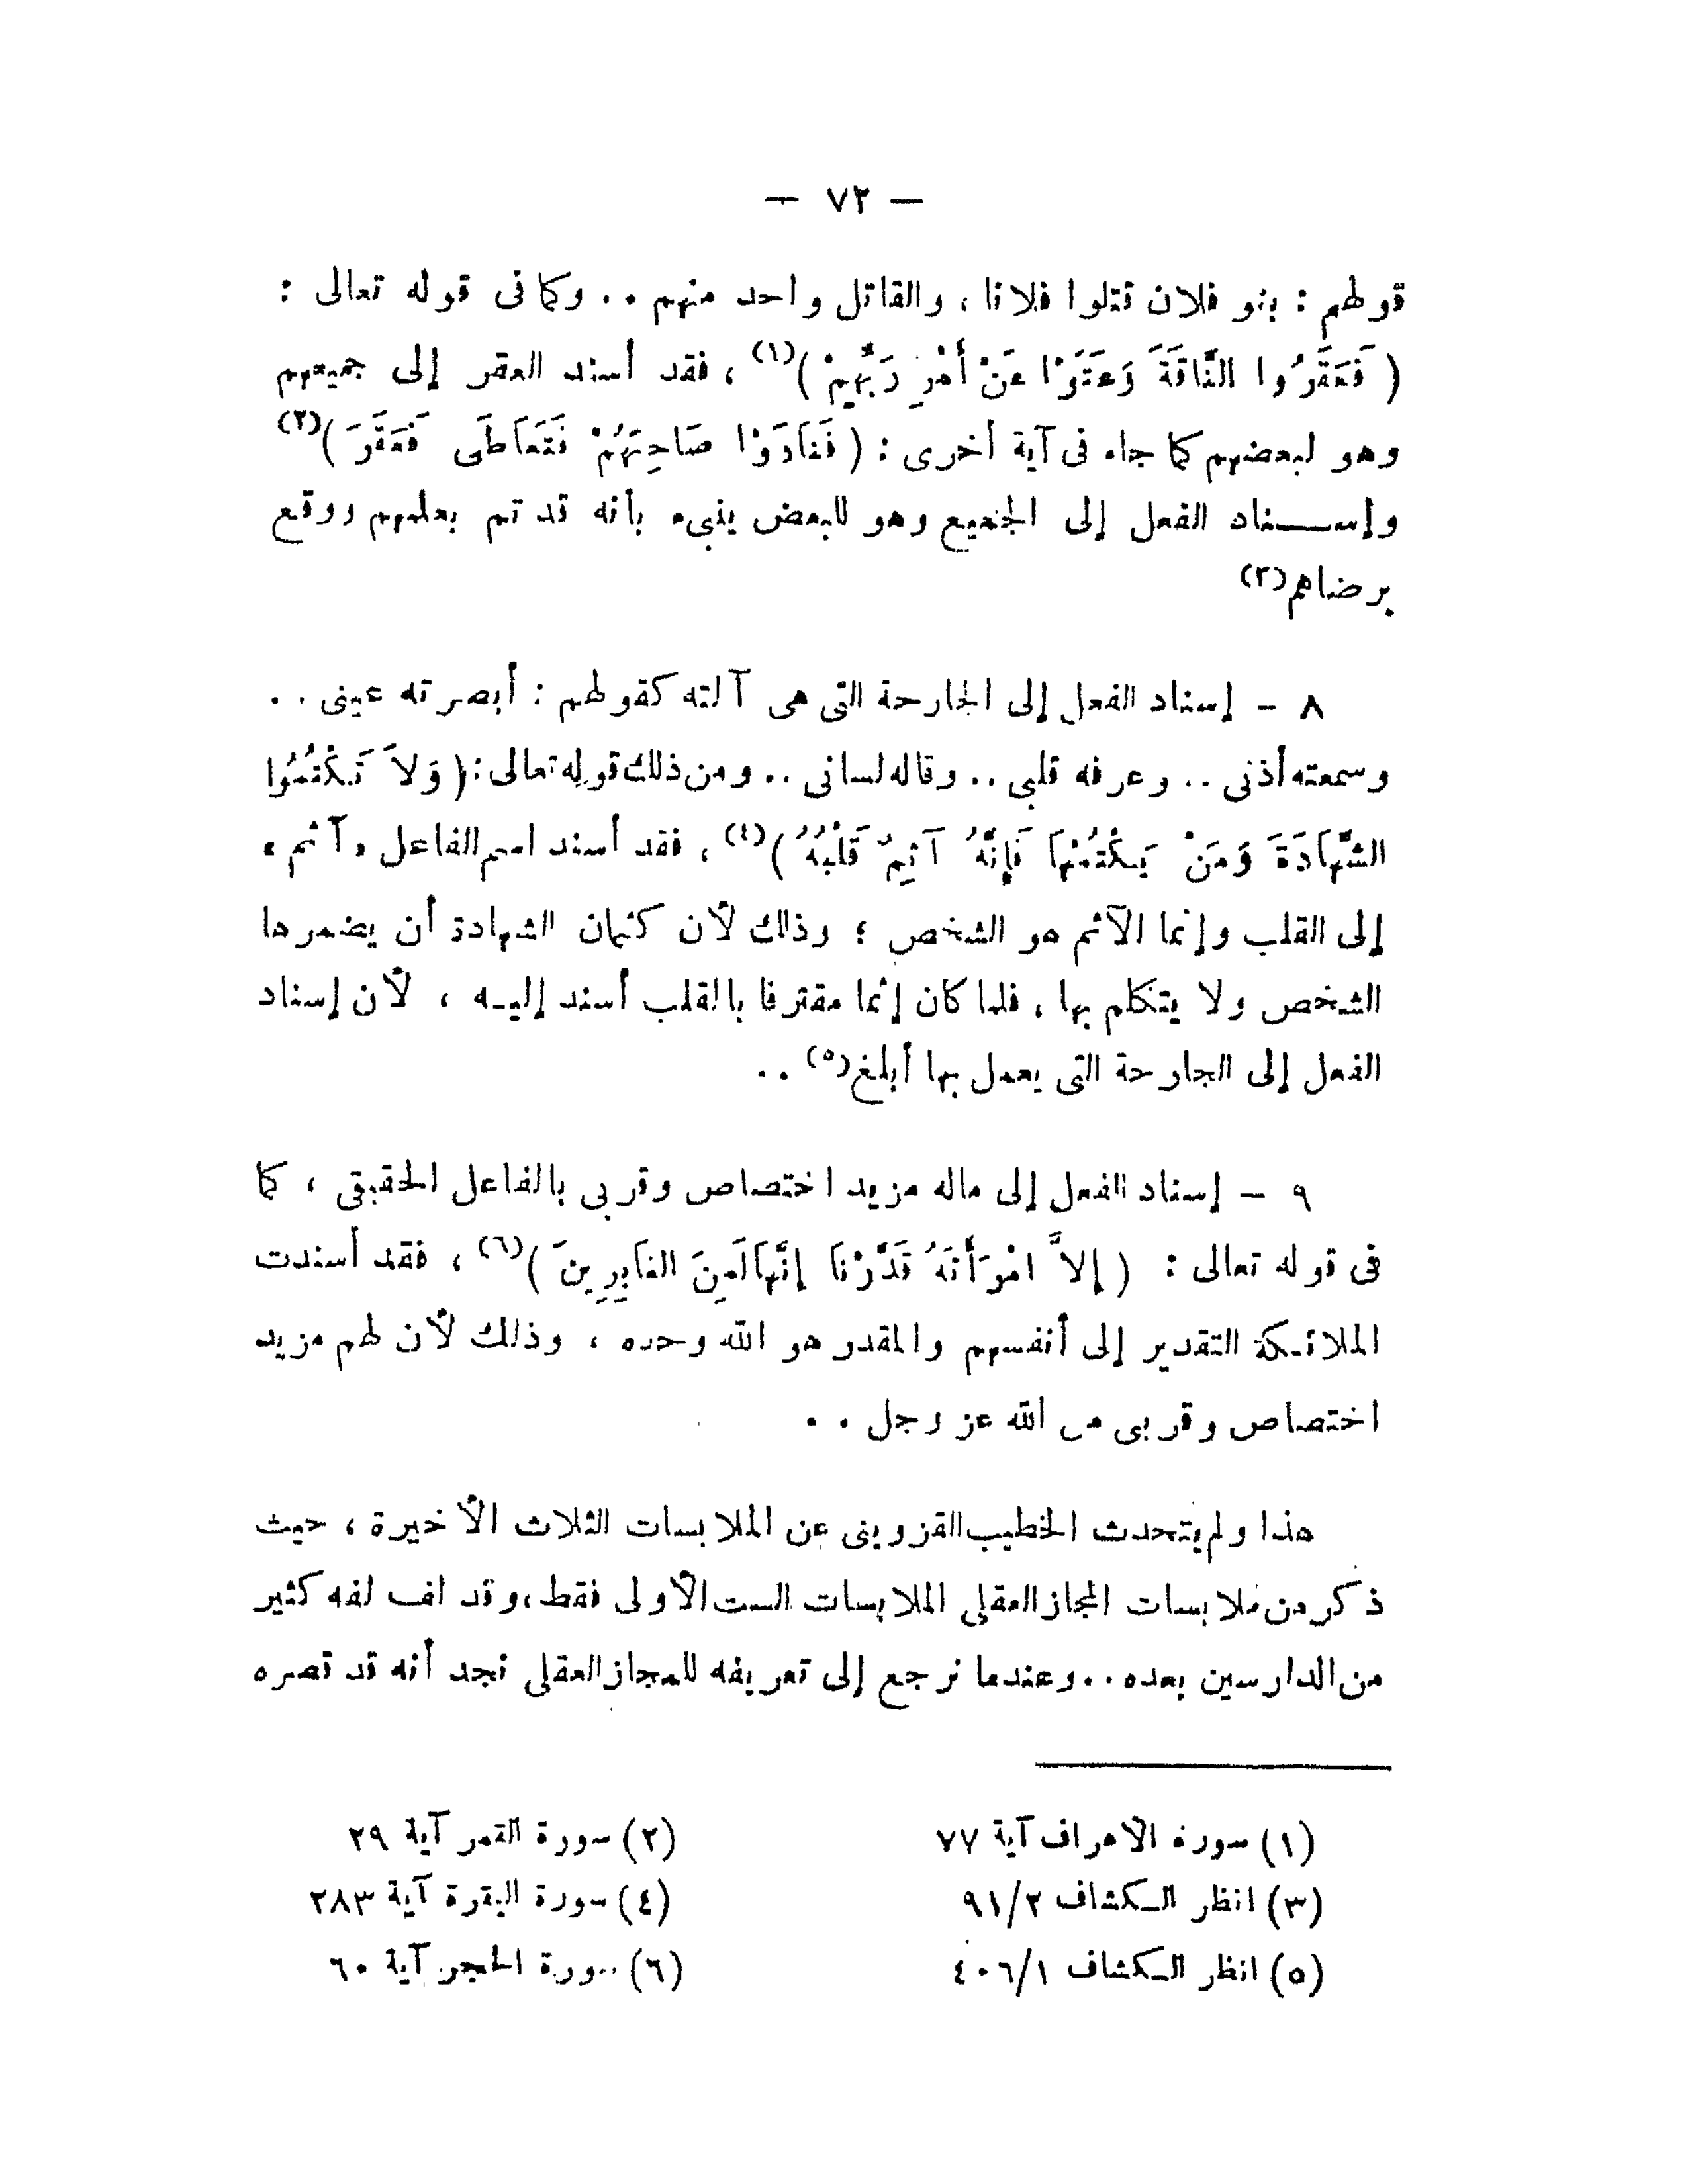 — ٧٢ —
قولهم : بنو فلان قتلوا فلانا ، والقاتل واحد منهم .. وكما فى قوله تعالى :
( فَعَقَرُوا النَّاقَةَ وَعَتَوْا عَنْ أَمْرِ رَبِّهِمْ )(١) ، فقد أسند العقر إلى جميعهم
وهو لبعضهم كما جاء فى آية أخرى : ( فَنَادَوْا صَاحِبَهُمْ فَتَعَاطَى فَعَقَرَ )(٢)
وإســـناد الفعل إلى الجميع وهو للبعض ينبىء بأنه قد تم بعلمهم ووقع
برضاهم(٣)
٨ - إسناد الفعل إلى الجارحة التى هى آلته كقولهم : أبصرته عينى ..
وسمعته أذنى .. وعرفه قلبى .. وقاله لسانى .. ومن ذلك قوله تعالى : ( وَلاَ تَكْتُمُوا
الشَّهَادَةَ وَمَنْ يَكْتُمْهَا فَإِنَّهُ آثِمٌ قَلْبُهُ )(٤) ، فقد أسند اسم الفاعل « آثم »
إلى القلب وإنما الآثم هو الشخص ؛ وذلك لأن كتمان الشهادة أن يضمرها
الشخص ولا يتكلم بها ، فلما كان إثما مقترفا بالقلب أسند إليـه ، لأن إسناد
الفعل إلى الجارحة التى يعمل بها أبلغ(٥) ..
٩ — إسناد الفعل إلى ماله مزيد اختصاص وقربى بالفاعل الحقيقى ، كما
فى قوله تعالى : ( إلاَّ امْرَأَتَهُ قَدَّرْنَا إنَّهَا لَمِنَ الغَابِرِينَ )(٦) ، فقد أسندت
الملائكة التقدير إلى أنفسهم والمقدر هو الله وحده ، وذلك لأن لهم مزيد
اختصاص وقربى من الله عز وجل ..
هذا ولم يتحدث الخطيب القزوينى عن الملابسات الثلاث الأخيرة ، حيث
ذكر من ملابسات المجاز العقلى الملابسات الست الأولى فقط ، وقد لف لفه كثير
من الدارسين بعده .. وعندما نرجع إلى تعريفه للمجاز العقلى نجد أنه قد قصره
(١) سورة الأعراف آية ٧٧
(٢) سورة القمر آية ٢٩
(٣) انظر الـكشاف ٩١/٢
(٤) سورة البقرة آية ٢٨٣
(٥) انظر الـكشاف ٤٠٦/١
(٦) سورة الحجر آية ٦٠